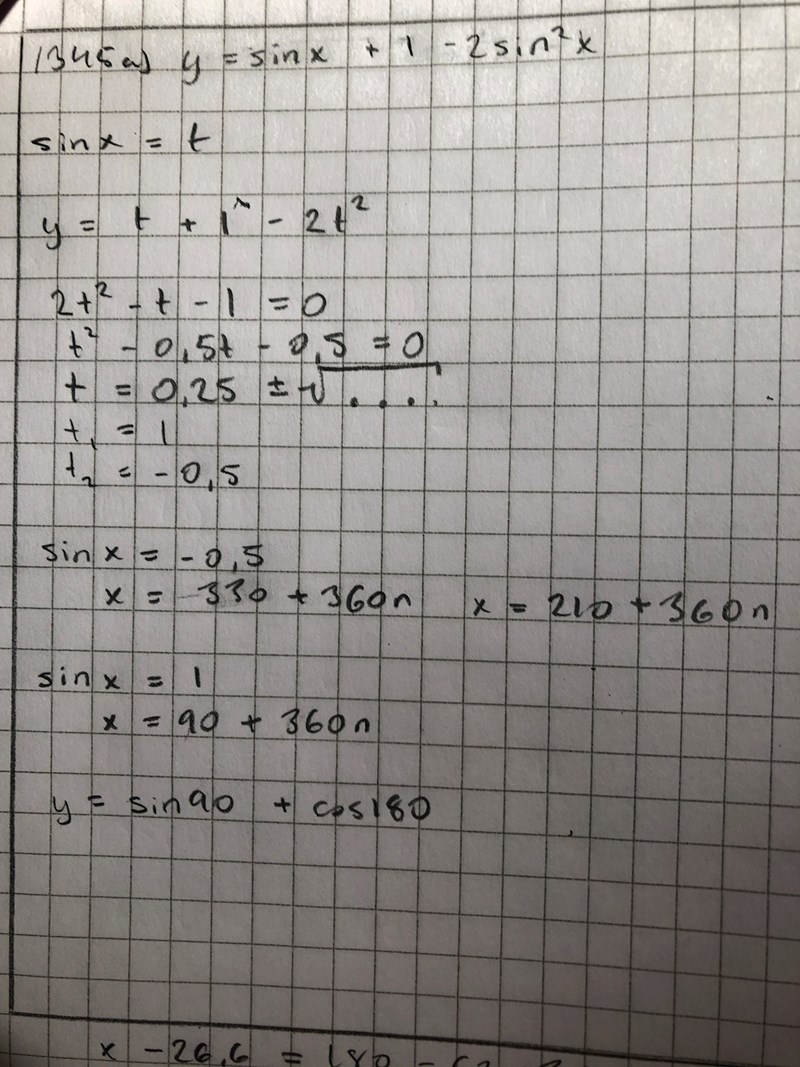 1345a) y = sinx + 1 - 2sin²x
sinx = t
y = t + 1 - 2t²
2t² - t - 1 = 0
t² - 0,5t - 0,5 = 0
t = 0,25 ± √....
t₁ = 1
t₂ = -0,5
sinx = -0,5
x = 330 + 360n x = 210 + 360n
sinx = 1
x = 90 + 360n
y = sin90 + cos180
x - 26,6 = 180 -